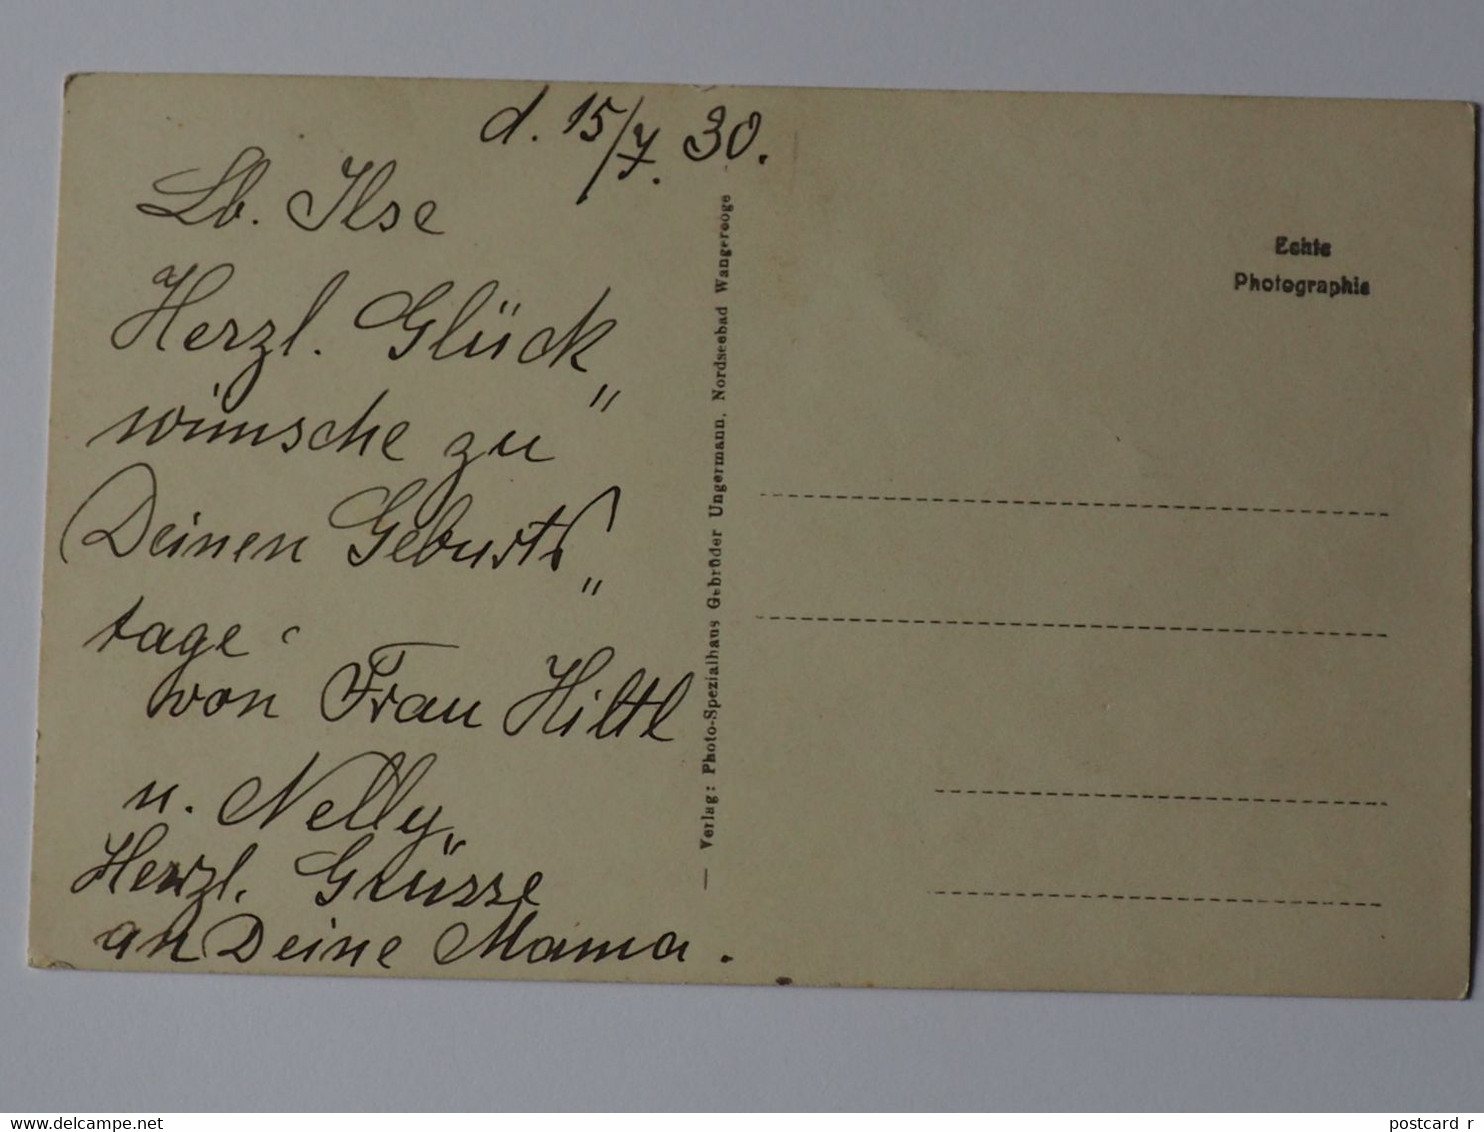 d. 15/7. 30.
Lb. Ilse
Herzl. Glück„
wünsche zu
Deinen Geburts„
tage.
von Frau Hiltl
u. Nelly.
Herzl. Grüsse
an Deine Mama.
— Verlag: Photo-Spezialhaus Gebrüder Ungermann, Nordseebad Wangerooge
Echte
Photographie
www.delcampe.net
postcard_r